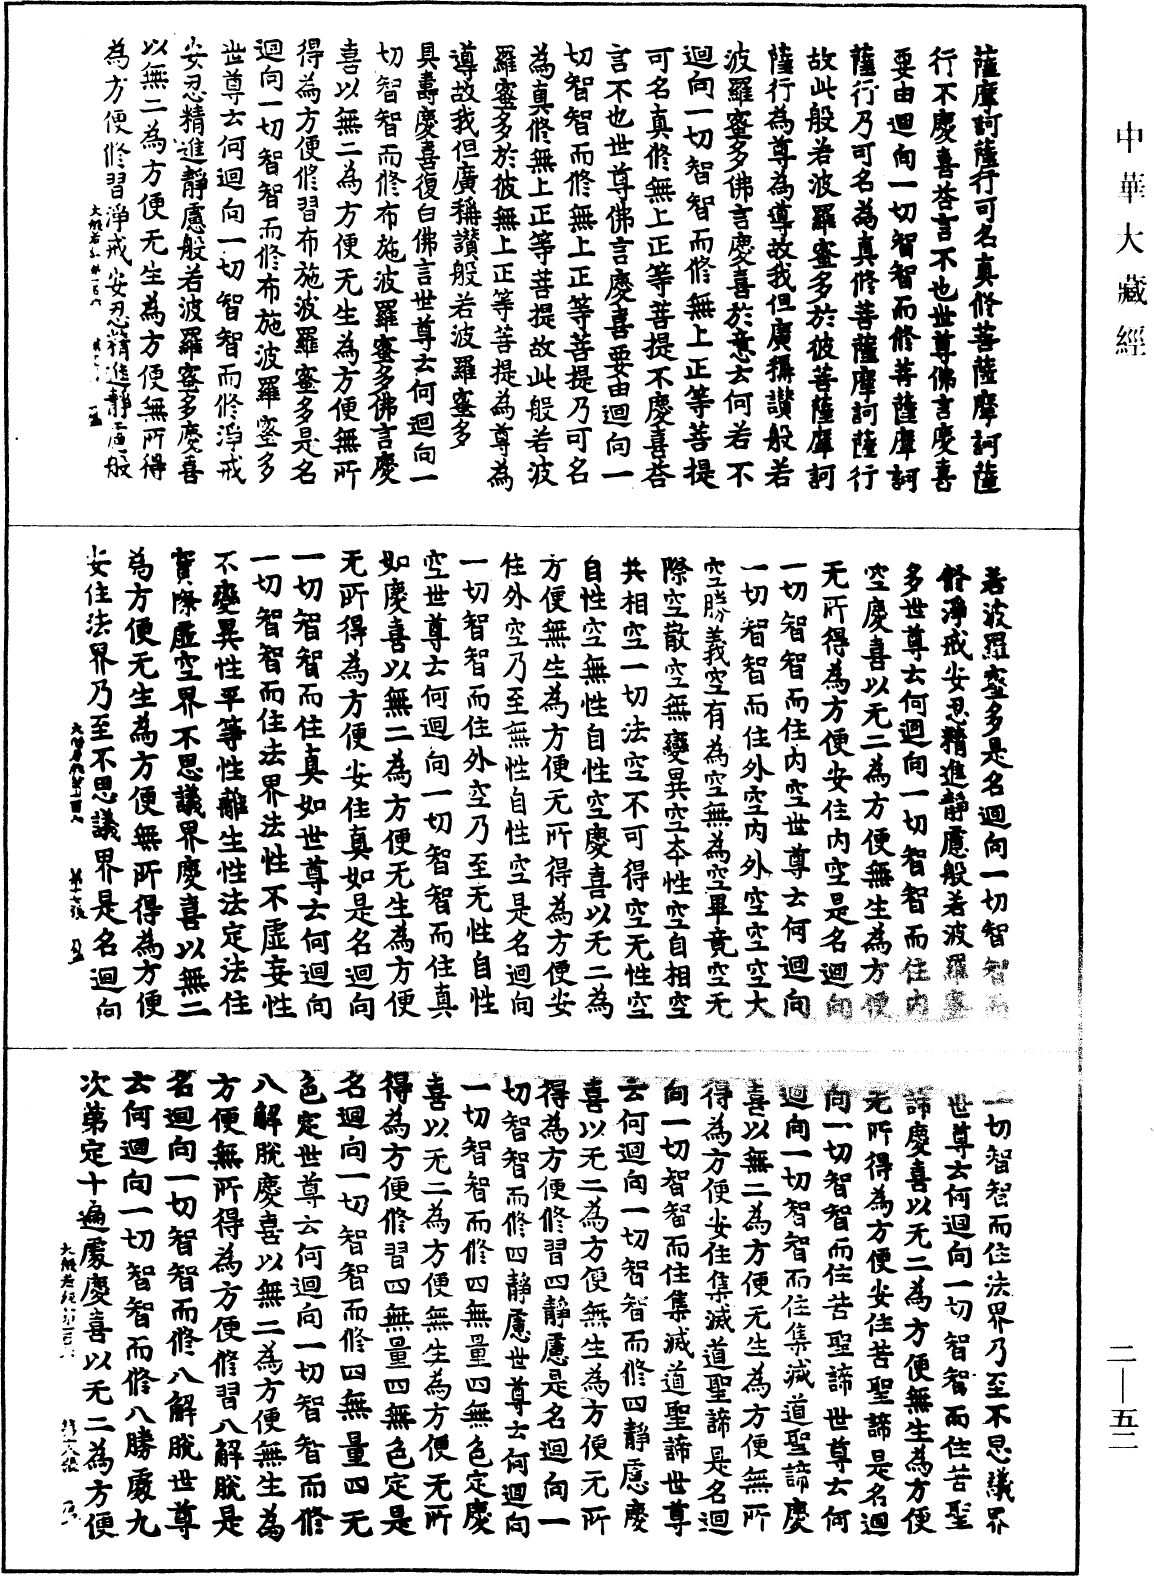 中華大藏經
薩摩訶薩行可名真修菩薩摩訶薩
行不慶喜荅言不也世尊佛言慶喜
要由迴向一切智智而修菩薩摩訶
薩行乃可名為真修菩薩摩訶薩行
故此般若波羅蜜多於彼菩薩摩訶
薩行為尊為導故我但廣稱讚般若
波羅蜜多佛言慶喜於意云何若不
迴向一切智智而修無上正等菩提
可名真修無上正等菩提不慶喜荅
言不也世尊佛言慶喜要由迴向一
切智智而修無上正等菩提乃可名
為真修無上正等菩提故此般若波
羅蜜多於彼無上正等菩提為尊為
導故我但廣稱讚般若波羅蜜多
具壽慶喜復白佛言世尊云何迴向一
切智智而修布施波羅蜜多佛言慶
喜以無二為方便无生為方便無所
得為方便修習布施波羅蜜多是名
迴向一切智智而修布施波羅蜜多
世尊云何迴向一切智智而修淨戒
安忍精進靜慮般若波羅蜜多慶喜
以無二為方便无生為方便無所得
為方便修習淨戒安忍精進靜慮般
若波羅蜜多是名迴向一切智智而
修淨戒安忍精進靜慮般若波羅蜜
多世尊云何迴向一切智智而住內
空慶喜以无二為方便無生為方便
无所得為方便安住內空是名迴向
一切智智而住內空世尊云何迴向
一切智智而住外空內外空空空大
空勝義空有為空無為空畢竟空无
際空散空無變異空本性空自相空
共相空一切法空不可得空无性空
自性空無性自性空慶喜以无二為
方便無生為方便无所得為方便安
住外空乃至無性自性空是名迴向
一切智智而住外空乃至无性自性
空世尊云何迴向一切智智而住真
如慶喜以無二為方便无生為方便
无所得為方便安住真如是名迴向
一切智智而住真如世尊云何迴向
一切智智而住法界法性不虛妄性
不變異性平等性離生性法定法住
實際虛空界不思議界慶喜以無二
為方便无生為方便無所得為方便
安住法界乃至不思議界是名迴向
一切智智而住法界乃至不思議界
世尊云何迴向一切智智而住苦聖
諦慶喜以无二為方便無生為方便
无所得為方便安住苦聖諦是名迴
向一切智智而住苦聖諦世尊云何
迴向一切智智而住集滅道聖諦慶
喜以無二為方便无生為方便無所
得為方便安住集滅道聖諦是名迴
向一切智智而住集滅道聖諦世尊
云何迴向一切智智而修四靜慮慶
喜以无二為方便無生為方便无所
得為方便修習四靜慮是名迴向一
切智智而修四靜慮世尊云何迴向
一切智智而修四無量四無色定慶
喜以无二為方便無生為方便无所
得為方便修習四無量四無色定是
名迴向一切智智而修四無量四无
色定世尊云何迴向一切智智而修
八解脫慶喜以無二為方便無生為
方便無所得為方便修習八解脫是
名迴向一切智智而修八解脫世尊
云何迴向一切智智而修八勝處九
次第定十遍處慶喜以无二為方便
二—五二